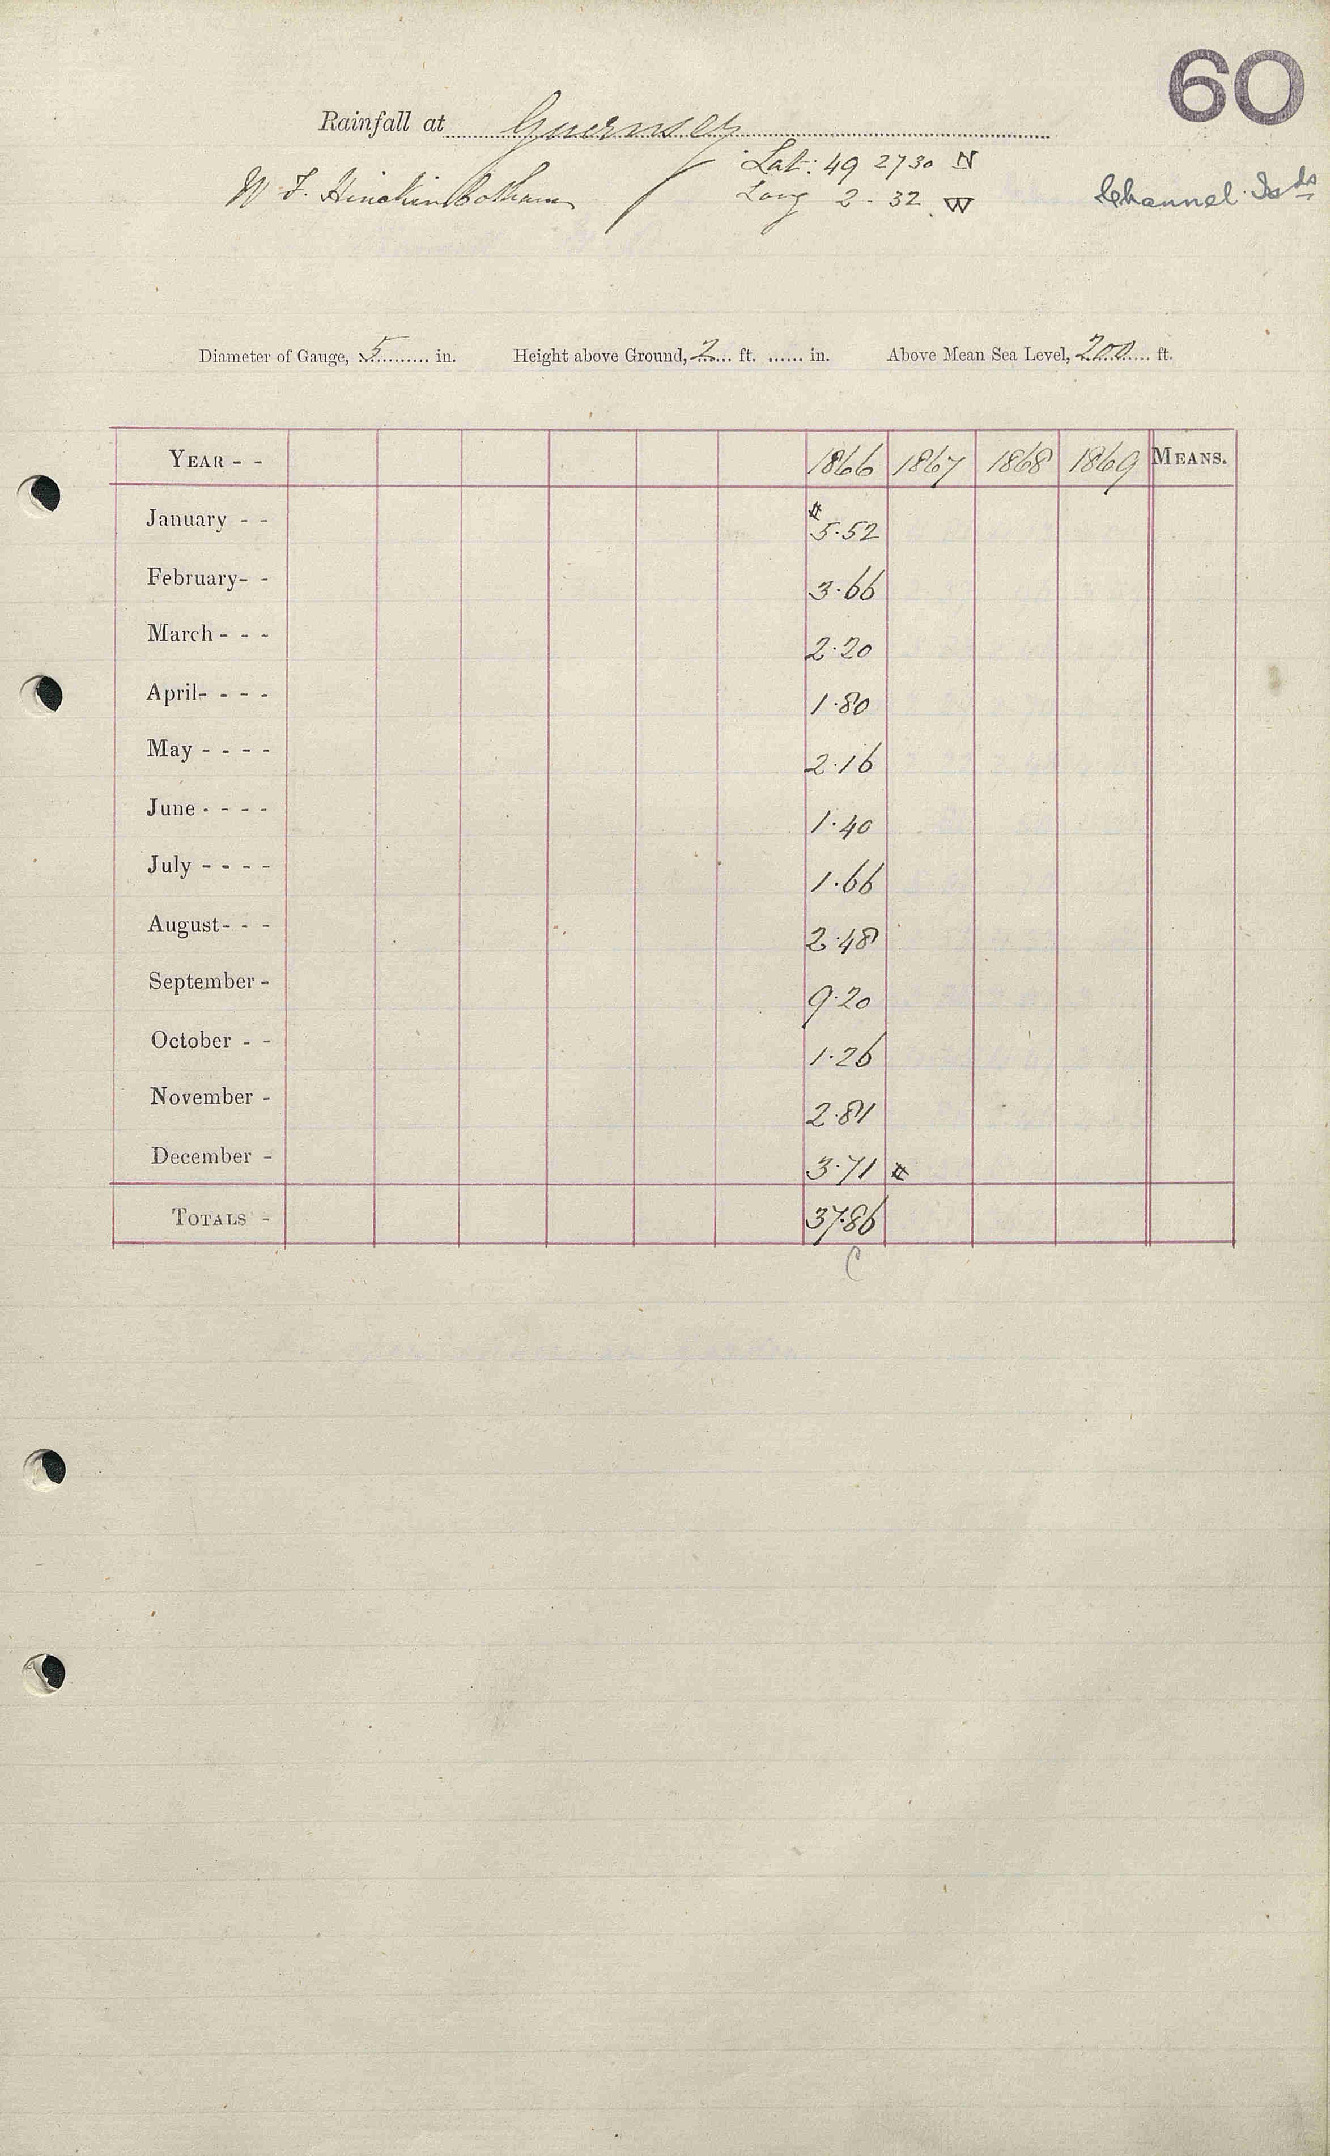 60
Rainfall at Guernsey
Lat: 49 27 30 N
W F. Hinchinbotham Long 2 - 32 W Channel Isds
Diameter of Gauge, 5 in. Height above Ground, 2 ft. ...... in. Above Mean Sea Level, 200 ft.
YEAR - - 1866 1867 1868 1869 MEANS.
January - - # 5.52
February- - 3.66
March - - - 2.20
April- - - - 1.80
May - - - - 2.16
June - - - - 1.40
July - - - - 1.66
August- - - 2.48
September - 9.20
October - - 1.26
November - 2.81
December - 3.71 #
TOTALS - 37.86
C